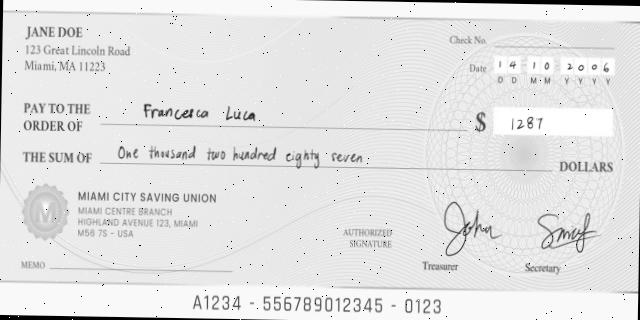 JANE DOE
123 Great Lincoln Road
Miami, MA 11223
Check No.
Date 14 10 2006
D D M M Y Y Y Y
PAY TO THE ORDER OF Francesca Luca
$ 1287
THE SUM OF One thousand two hundred eighty seven DOLLARS
M
MIAMI CITY SAVING UNION
MIAMI CENTRE BRANCH
HIGHLAND AVENUE 123, MIAMI
M56 7S - USA
AUTHORIZED SIGNATURE
John
Smuf
Treasurer
Secretary
MEMO
A1234 - 556789012345 - 0123